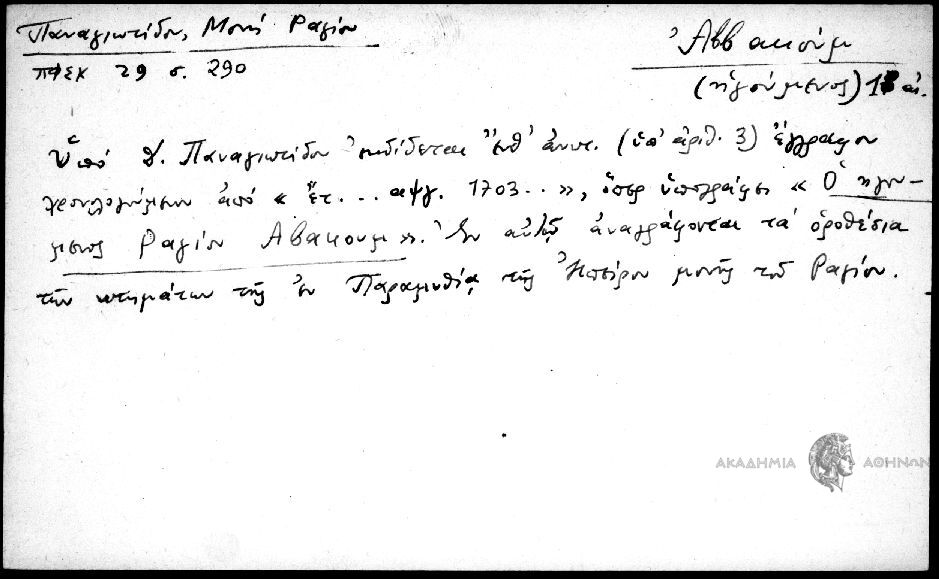 Παναγιωτίδου, Μονή Ραγίου
ΠΦΣΚ 29 σ. 290
Ἀββακούμ
(ἡγούμενος) 18 αἰ.
Ὑπό Δ. Παναγιωτίδου ἐκδίδεται ἔνθ' ἀνωτ. (ὑπ' ἀριθ. 3) ἔγγραφον
χρονολογούμενον ἀπό « ἔτ... αψγ. 1703.. », ὅπερ ὑπογράφει « Ὁ ἡγού-
μενος Ραγίου Αβακουμ ». Ἐν αὐτῷ ἀναγράφονται τά ὁροθέσια
τῶν κτημάτων τῆς ἐν Παραμυθίᾳ τῆς Ἠπείρου μονῆς τοῦ Ραγίου.
ΑΚΑΔΗΜΙΑ ΑΘΗΝΩΝ